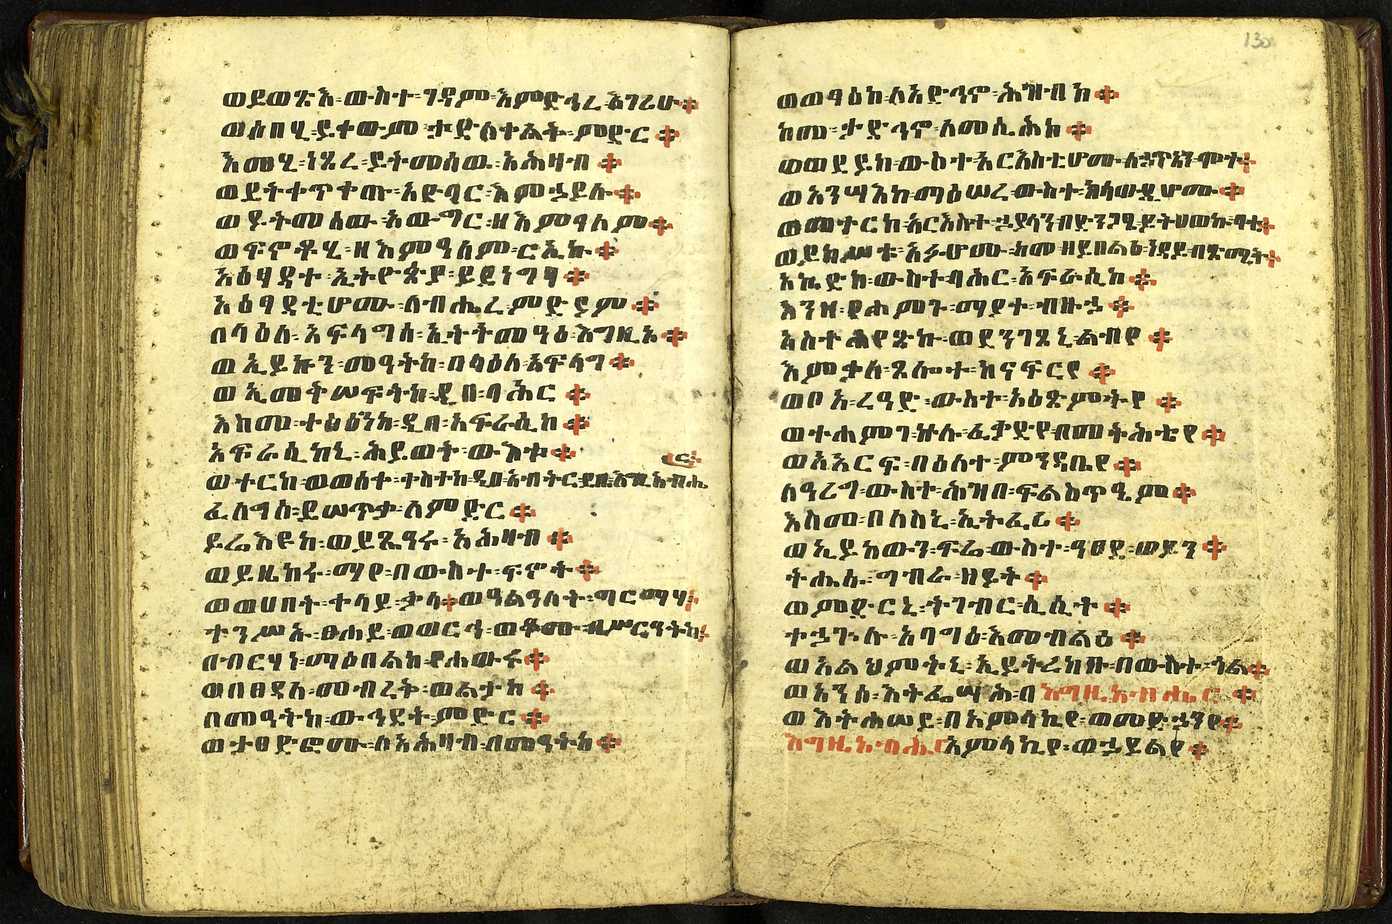 ወይወፅእ፡ውስተ፡ገዳም፡እምድኅረ፡እገሪሁ፨
ወሰበሂ፡ይቀውም፡ታድለቀልቅ፡ምድር፨
እመሂ፡ነጸረ፡ይትመሰዉ፡አሕዛብ፨
ወይትቀጥቀጡ፡አድባር፡እምኃይሉ፨
ወይትመሰው፡አውግር፡ዘእምዓለም፨
ወፍኖቶሂ፡ዘእምዓለም፡ርኢኩ፨
አዕፃዳተ፡ኢትዮጵያ፡ይደነግፃ፨
አዕፃዳቲሆሙ፡ለብሔረ፡ምድያም፨
በላዕለ፡አፍላግሰ፡ኢትትመዓዕ፡እግዚኦ፨
ወኢይኩን፡መዓትከ፡በላዕለ፡አፍላግ፨
ወኢመቅሠፍትከ፡ዲበ፡ባሕር፨
እስመ፡ተፅዕንከ፡ዲበ፡አፍራሲከ፨
አፍራሲከኒ፡ሕይወት፡ውእቱ፨
ወተርከ፡ወወሰቀ፡ቀስተከ፡ዲበ፡አብትር፡ይቤ፡እግዚአብሔር፨
ፈለግስ፡ይሠጥቃ፡ለምድር፨
ይሬእዩከ፡ወይጼዓሩ፡አሕዛብ፨
ወይዜከሩ፡ማየ፡በውስተ፡ፍኖት፨
ወወሀበት፡ቀላይ፡ቃላ፨ወዓልዓለት፡ግርማሃ፨
ተንሥአ፡ፀሐይ፡ወወርኅ፡ወቆሙ፡በሥርዓትከ፨
በብርሃነ፡ማዕበልከ፡የሐውሩ፨
ወበፀዳለ፡መብረቅ፡ወልታከ፨
በመዓትከ፡ውኅደት፡ምድር፨
ወታፀድፎሙ፡ለአሕዛብ፡በመዓትከ፨
130
ወወፃዕከ፡ለአድኅኖ፡ሕዝብከ፨
ከመ፡ታድኅኖ፡ለመሲሕከ፨
ወወደይከ፡ውስተ፡አርእስቲሆሙ፡ለኃጥኣን፡ሞተ፨
ወአንሣእከ፡ማዕሠረ፡ውስተ፡ክሳውዲሆሙ፨
ወመተርከ፡አርእስተ፡ኃያላን፡በድንጋፄ፡ይትሀወኩ፡ባቲ፨
ወይከሥቱ፡አፉሆሙ፡ከመ፡ዘይበልዕ፡ነዳይ፡በጽሚት፨
አኬድከ፡ውስተ፡ባሕር፡አፍራሲከ፨
እንዘ፡የሐምጉ፡ማየተ፡ብዙኃ፨
አስተሐየጽኩ፡ወደንገጸኒ፡ልብየ፨
እምቃለ፡ጸሎተ፡ከናፍርየ፨
ወቦአ፡ረዓድ፡ውስተ፡አዕጽምትየ፨
ወተሐምገ፡ኵሉ፡ፈቃድየ፡በመትሕቴየ፨
ወአአርፍ፡በዕለተ፡ምንዳቤየ፨
ለዓሪግ፡ውስተ፡ሕዝበ፡ፍልስጥዒም፨
እስመ፡በለስኒ፡ኢትፈሪ፨
ወኢይከውን፡ፍሬ፡ውስተ፡ዓፀደ፡ወይን፨
ትሔሱ፡ግብራ፡ዘይት፨
ወምድርኒ፡ትገብር፡ሲሲት፨
ተኃጕሉ፡አባግዕ፡እመብልዕ፨
ወአልህምትኒ፡ኢይትረከቡ፡በውስተ፡ጎል፨
ወአንሰ፡እትፌሣሕ፡በእግዚአብሔር፨
ወእትሐሠይ፡በአምላኪየ፡ወመድኃኒየ፨
እግዚአብሔር፡አምላኪየ፡ወኃይልየ፨